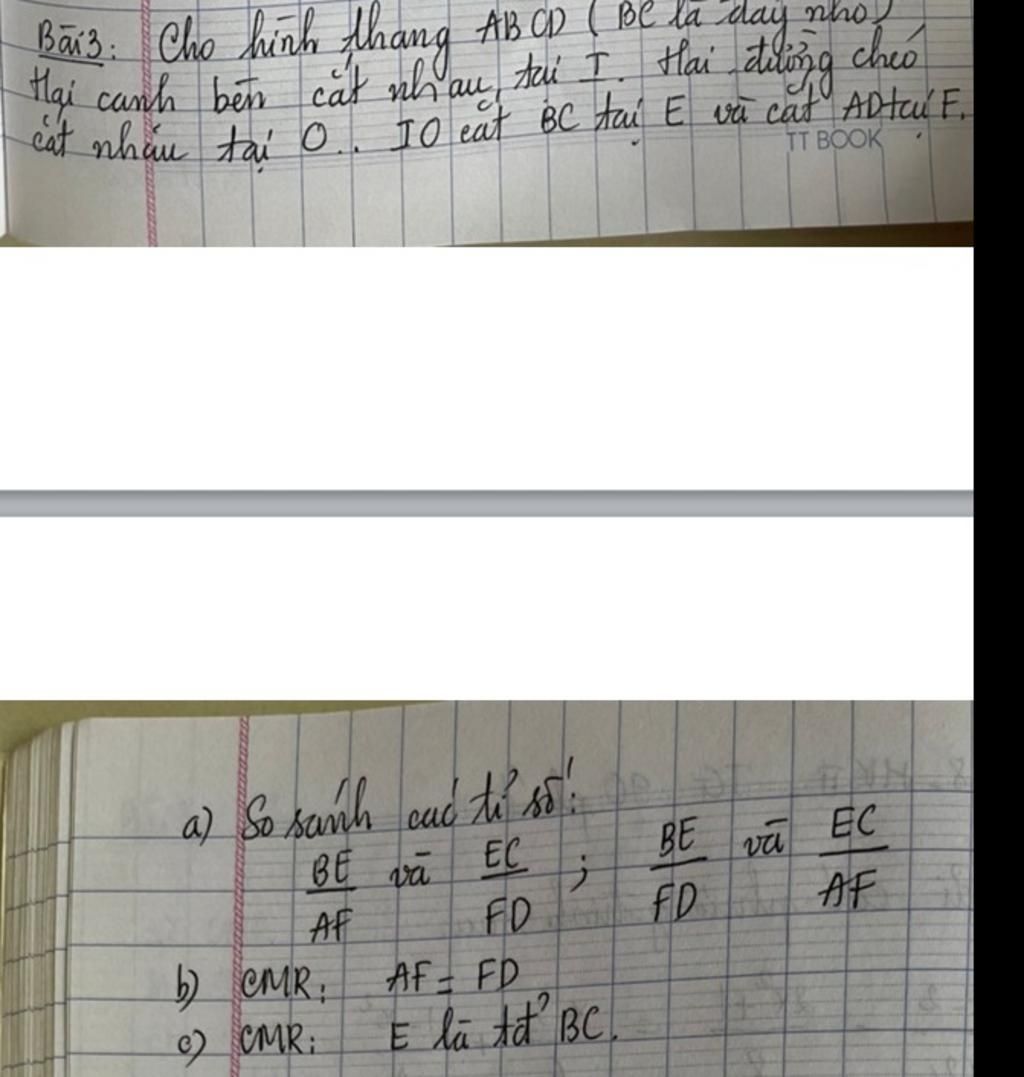 Bài 3: Cho hình thang ABCD (BC là đáy nhỏ)
Hai cạnh bên cắt nhau tại I. Hai đường chéo
cắt nhau tại O.. IO cắt BC tại E và cắt AD tại F.
TT BOOK
a) So sánh các tỉ số:
BE/AF và EC/FD ; BE/FD và EC/AF
b) CMR: AF = FD
c) CMR: E là tđ BC.